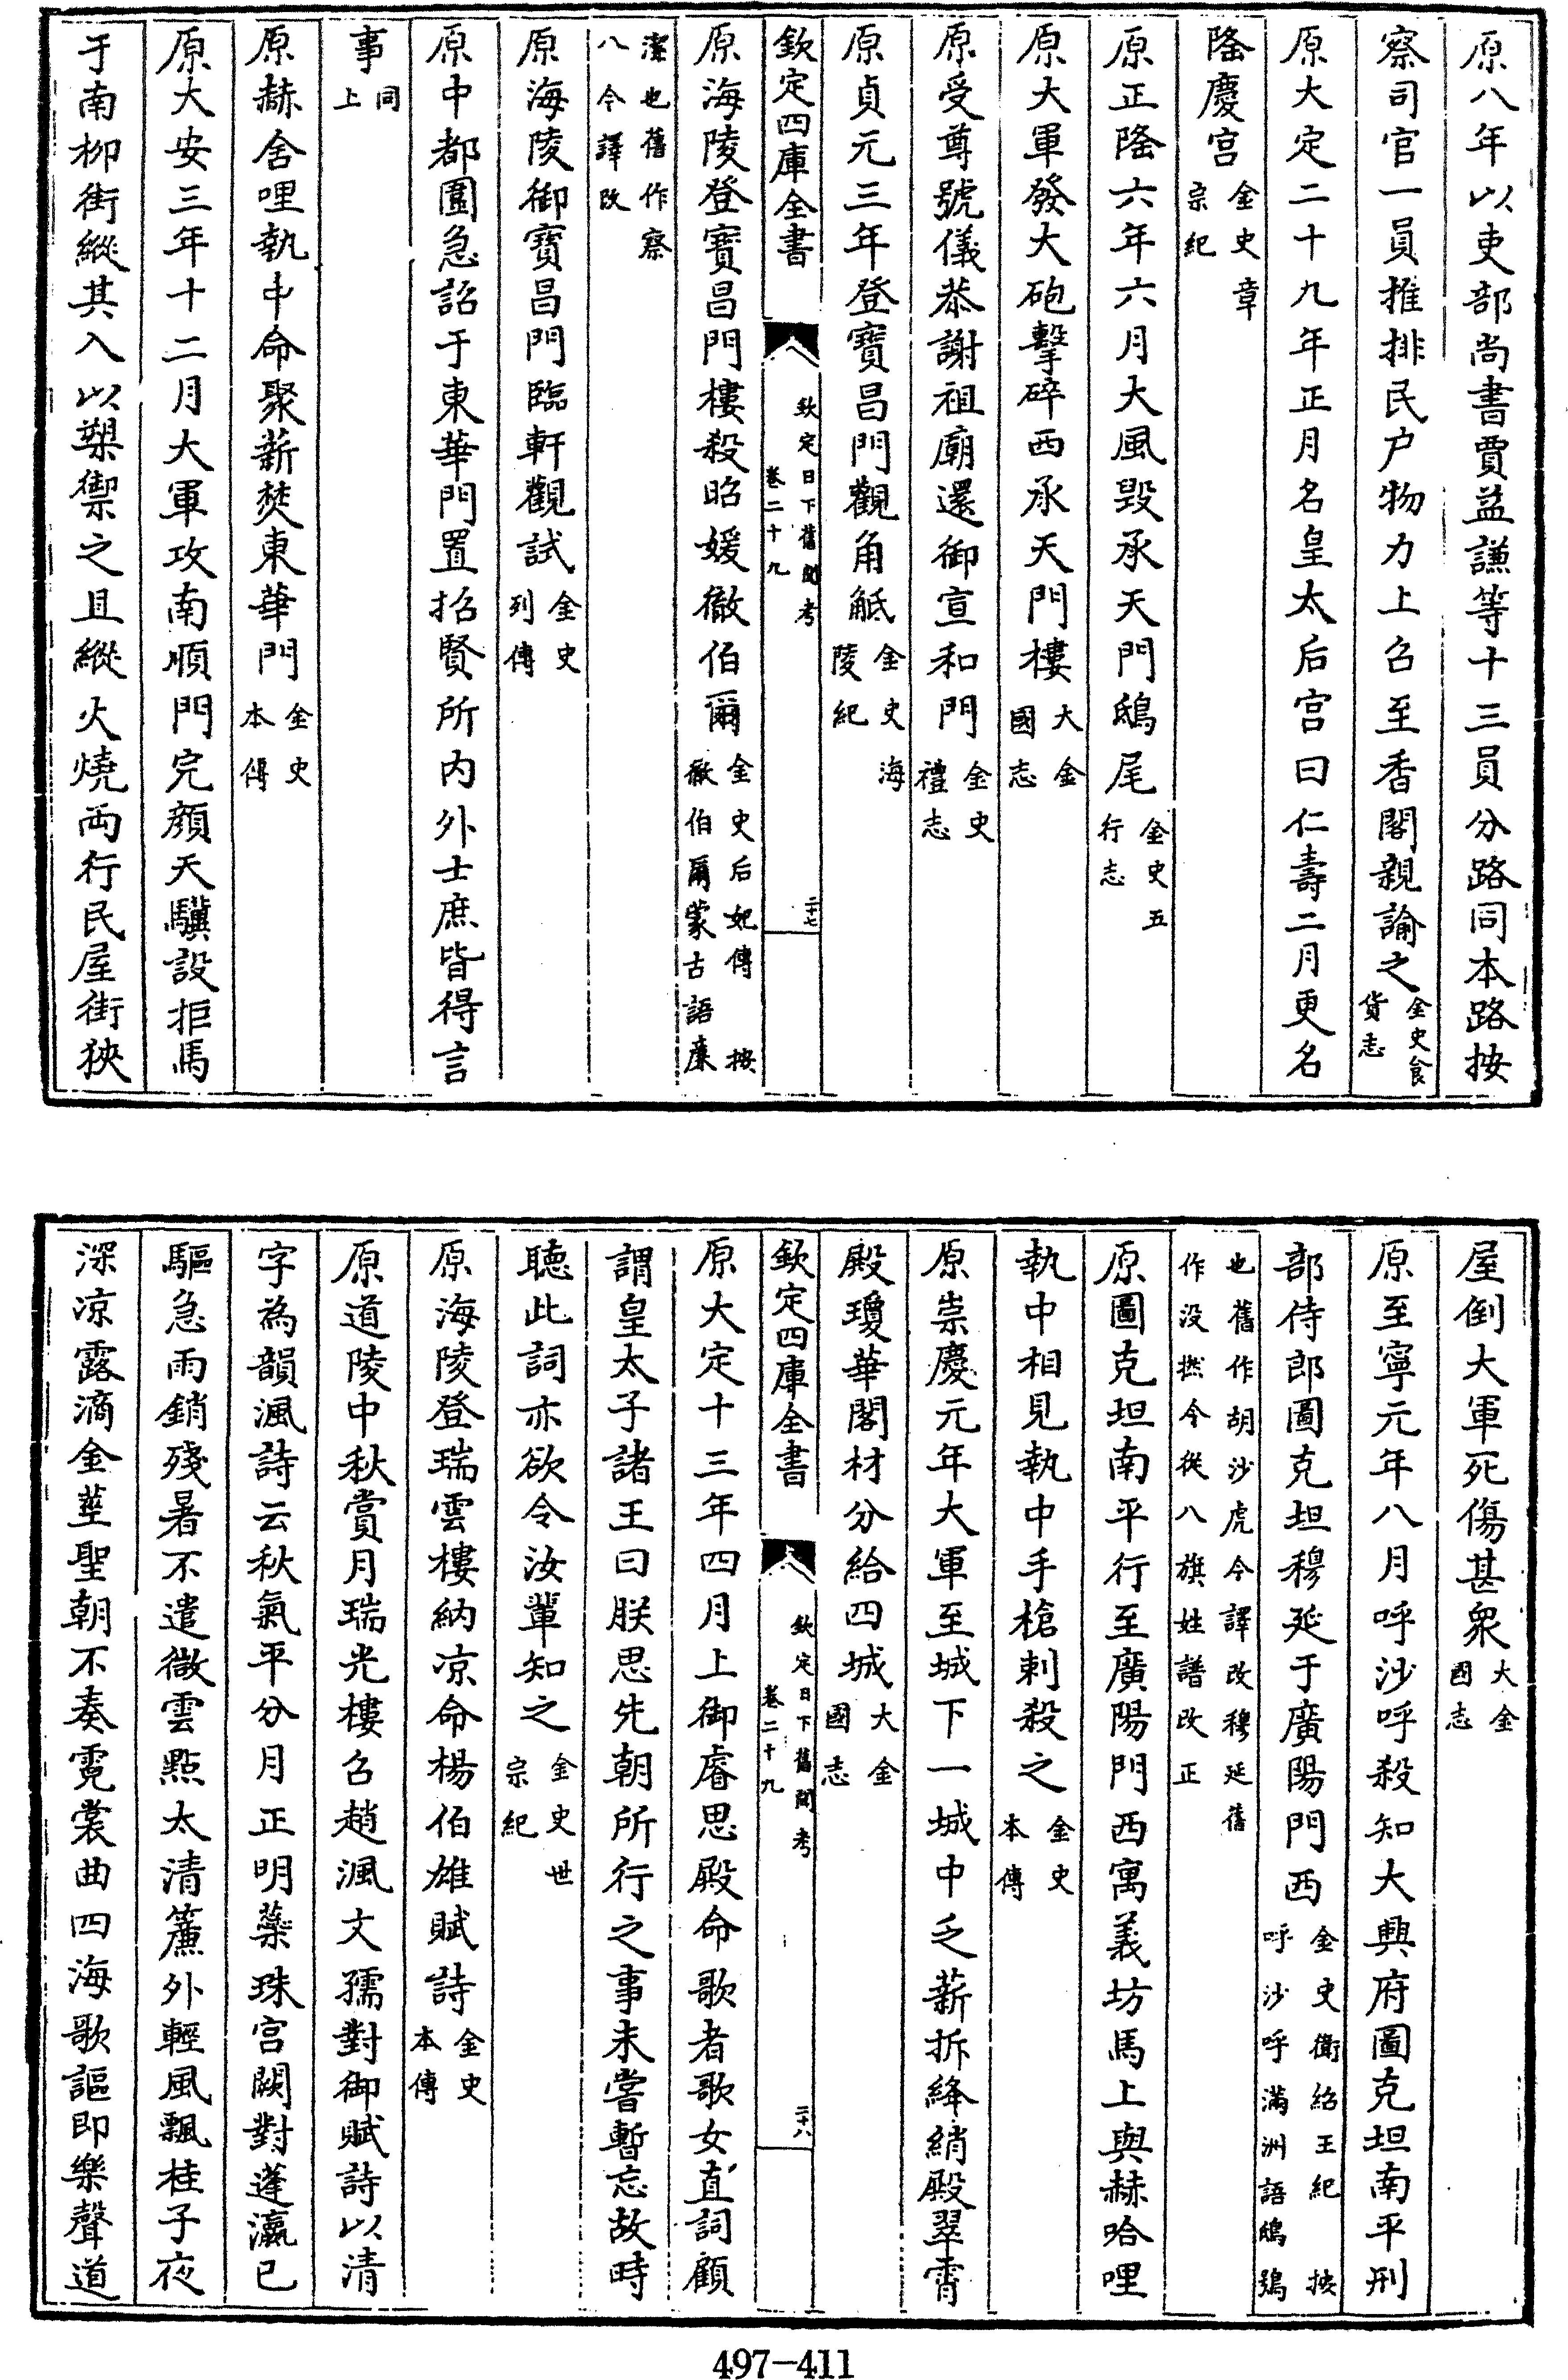 原八年以吏部尚書賈益謙等十三員分路同本路按
察司官一員推排民户物力上召至香閣親諭之金史食貨志
原大定二十九年正月名皇太后宫曰仁壽二月更名
隆慶宫金史章宗紀
原正隆六年六月大風毁承天門鴟尾金史五行志
原大軍發大砲擊碎西承天門樓大金國志
原受尊號儀恭謝祖廟還御宣和門金史禮志
原貞元三年登寶昌門觀角觝金史海陵紀
欽定四庫全書
欽定日下舊聞考
卷二十九
二十七
原海陵登寶昌門樓殺昭媛徹伯爾金史后妃傳 按徹伯爾蒙古語亷
潔也舊作察八今譯改
原海陵御寶昌門臨軒觀試金史列傳
原中都圍急詔于東華門置招賢所内外士庶皆得言
事同上
原赫舍哩執中命聚薪焚東華門金史本傳
原大安三年十二月大軍攻南順門完顔天驥設拒馬
于南柳街縱其入以槊禦之且縱火燒兩行民屋街狹
屋倒大軍死傷甚衆大金國志
原至寧元年八月呼沙呼殺知大興府圖克坦南平刑
部侍郎圖克坦穆延于廣陽門西金史衛紹王紀 按呼沙呼滿洲語鴟鴞
也舊作胡沙虎今譯改穆延舊作没撚今從八旗姓譜改正
原圖克坦南平行至廣陽門西寓義坊馬上與赫哈哩
執中相見執中手槍刺殺之金史本傳
原崇慶元年大軍至城下一城中乏薪拆絳綃殿翠霄
殿瓊華閣材分給四城大金國志
欽定四庫全書
欽定日下舊聞考
卷二十九
二十八
原大定十三年四月上御睿思殿命歌者歌女直詞顧
謂皇太子諸王曰朕思先朝所行之事未嘗暫忘故時
聽此詞亦欲令汝輩知之金史世宗紀
原海陵登瑞雲樓納凉命楊伯雄賦詩金史本傳
原道陵中秋賞月瑞光樓召趙渢文孺對御賦詩以清
字為韻渢詩云秋氣平分月正明蘂珠宫闕對蓬瀛已
驅急雨銷殘暑不遣微雲㸃太清簾外輕風飄桂子夜
深凉露滴金莖聖朝不奏霓裳曲四海歌謳即樂聲道
497-411